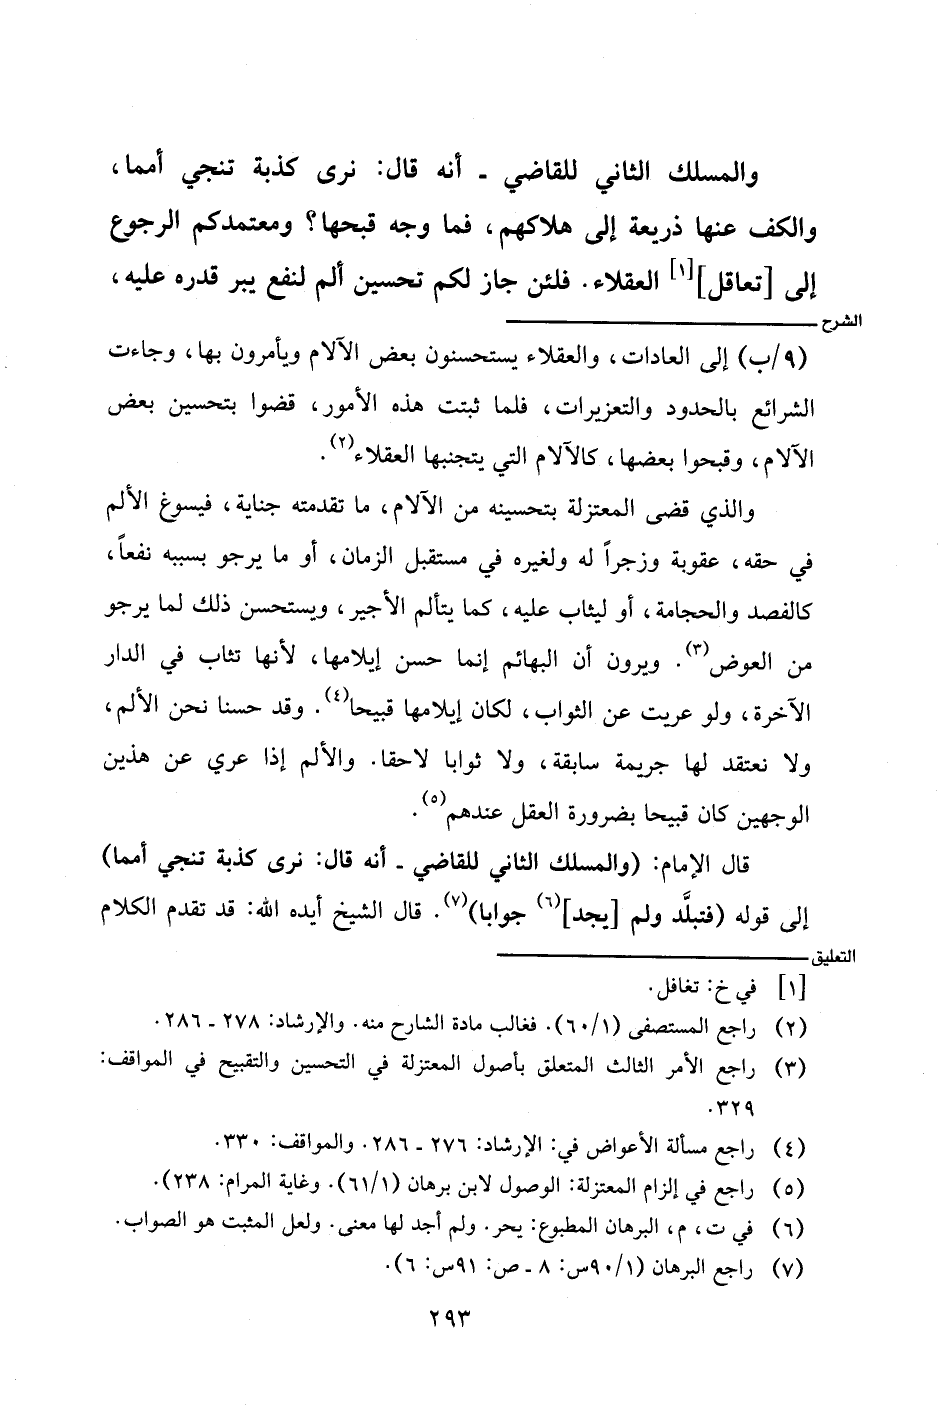 والمسلك الثاني للقاضي ـ أنه قال: نرى كذبة تنجي أمما،
والكف عنها ذريعة إلى هلاكهم، فما وجه قبحها؟ ومعتمدكم الرجوع
إلى [تعاقل][١] العقلاء. فلئن جاز لكم تحسين ألم لنفع يبر قدره عليه،
الشرح
(٩/ب) إلى العادات، والعقلاء يستحسنون بعض الآلام ويأمرون بها، وجاءت
الشرائع بالحدود والتعزيرات، فلما ثبتت هذه الأمور، قضوا بتحسين بعض
الآلام، وقبحوا بعضها، كالآلام التي يتجنبها العقلاء(٢).
والذي قضى المعتزلة بتحسينه من الآلام، ما تقدمته جناية، فيسوغ الألم
في حقه، عقوبة وزجراً له ولغيره في مستقبل الزمان، أو ما يرجو بسببه نفعاً،
كالفصد والحجامة، أو ليثاب عليه، كما يتألم الأجير، ويستحسن ذلك لما يرجو
من العوض(٣). ويرون أن البهائم إنما حسن إيلامها، لأنها تثاب في الدار
الآخرة، ولو عريت عن الثواب، لكان إيلامها قبيحا(٤). وقد حسنا نحن الألم،
ولا نعتقد لها جريمة سابقة، ولا ثوابا لاحقا. والألم إذا عري عن هذين
الوجهين كان قبيحا بضرورة العقل عندهم(٥).
قال الإمام: (والمسلك الثاني للقاضي ـ أنه قال: نرى كذبة تنجي أمما)
إلى قوله (فتبلَّد ولم [يجد](٦) جوابا)(٧). قال الشيخ أيده الله: قد تقدم الكلام
التعليق
[١] في خ: تغافل.
(٢) راجع المستصفى (٦٠/١). فغالب مادة الشارح منه. والإرشاد: ٢٧٨ ـ ٢٨٦.
(٣) راجع الأمر الثالث المتعلق بأصول المعتزلة في التحسين والتقبيح في المواقف:
٣٢٩.
(٤) راجع مسألة الأعواض في: الإرشاد: ٢٧٦ ـ ٢٨٦. والمواقف: ٣٣٠.
(٥) راجع في إلزام المعتزلة: الوصول لابن برهان (٦١/١). وغاية المرام: ٢٣٨).
(٦) في ت، م، البرهان المطبوع: يحر. ولم أجد لها معنى. ولعل المثبت هو الصواب.
(٧) راجع البرهان (٩٠/١س: ٨ ـ ص: ٩١س: ٦).
٢٩٣